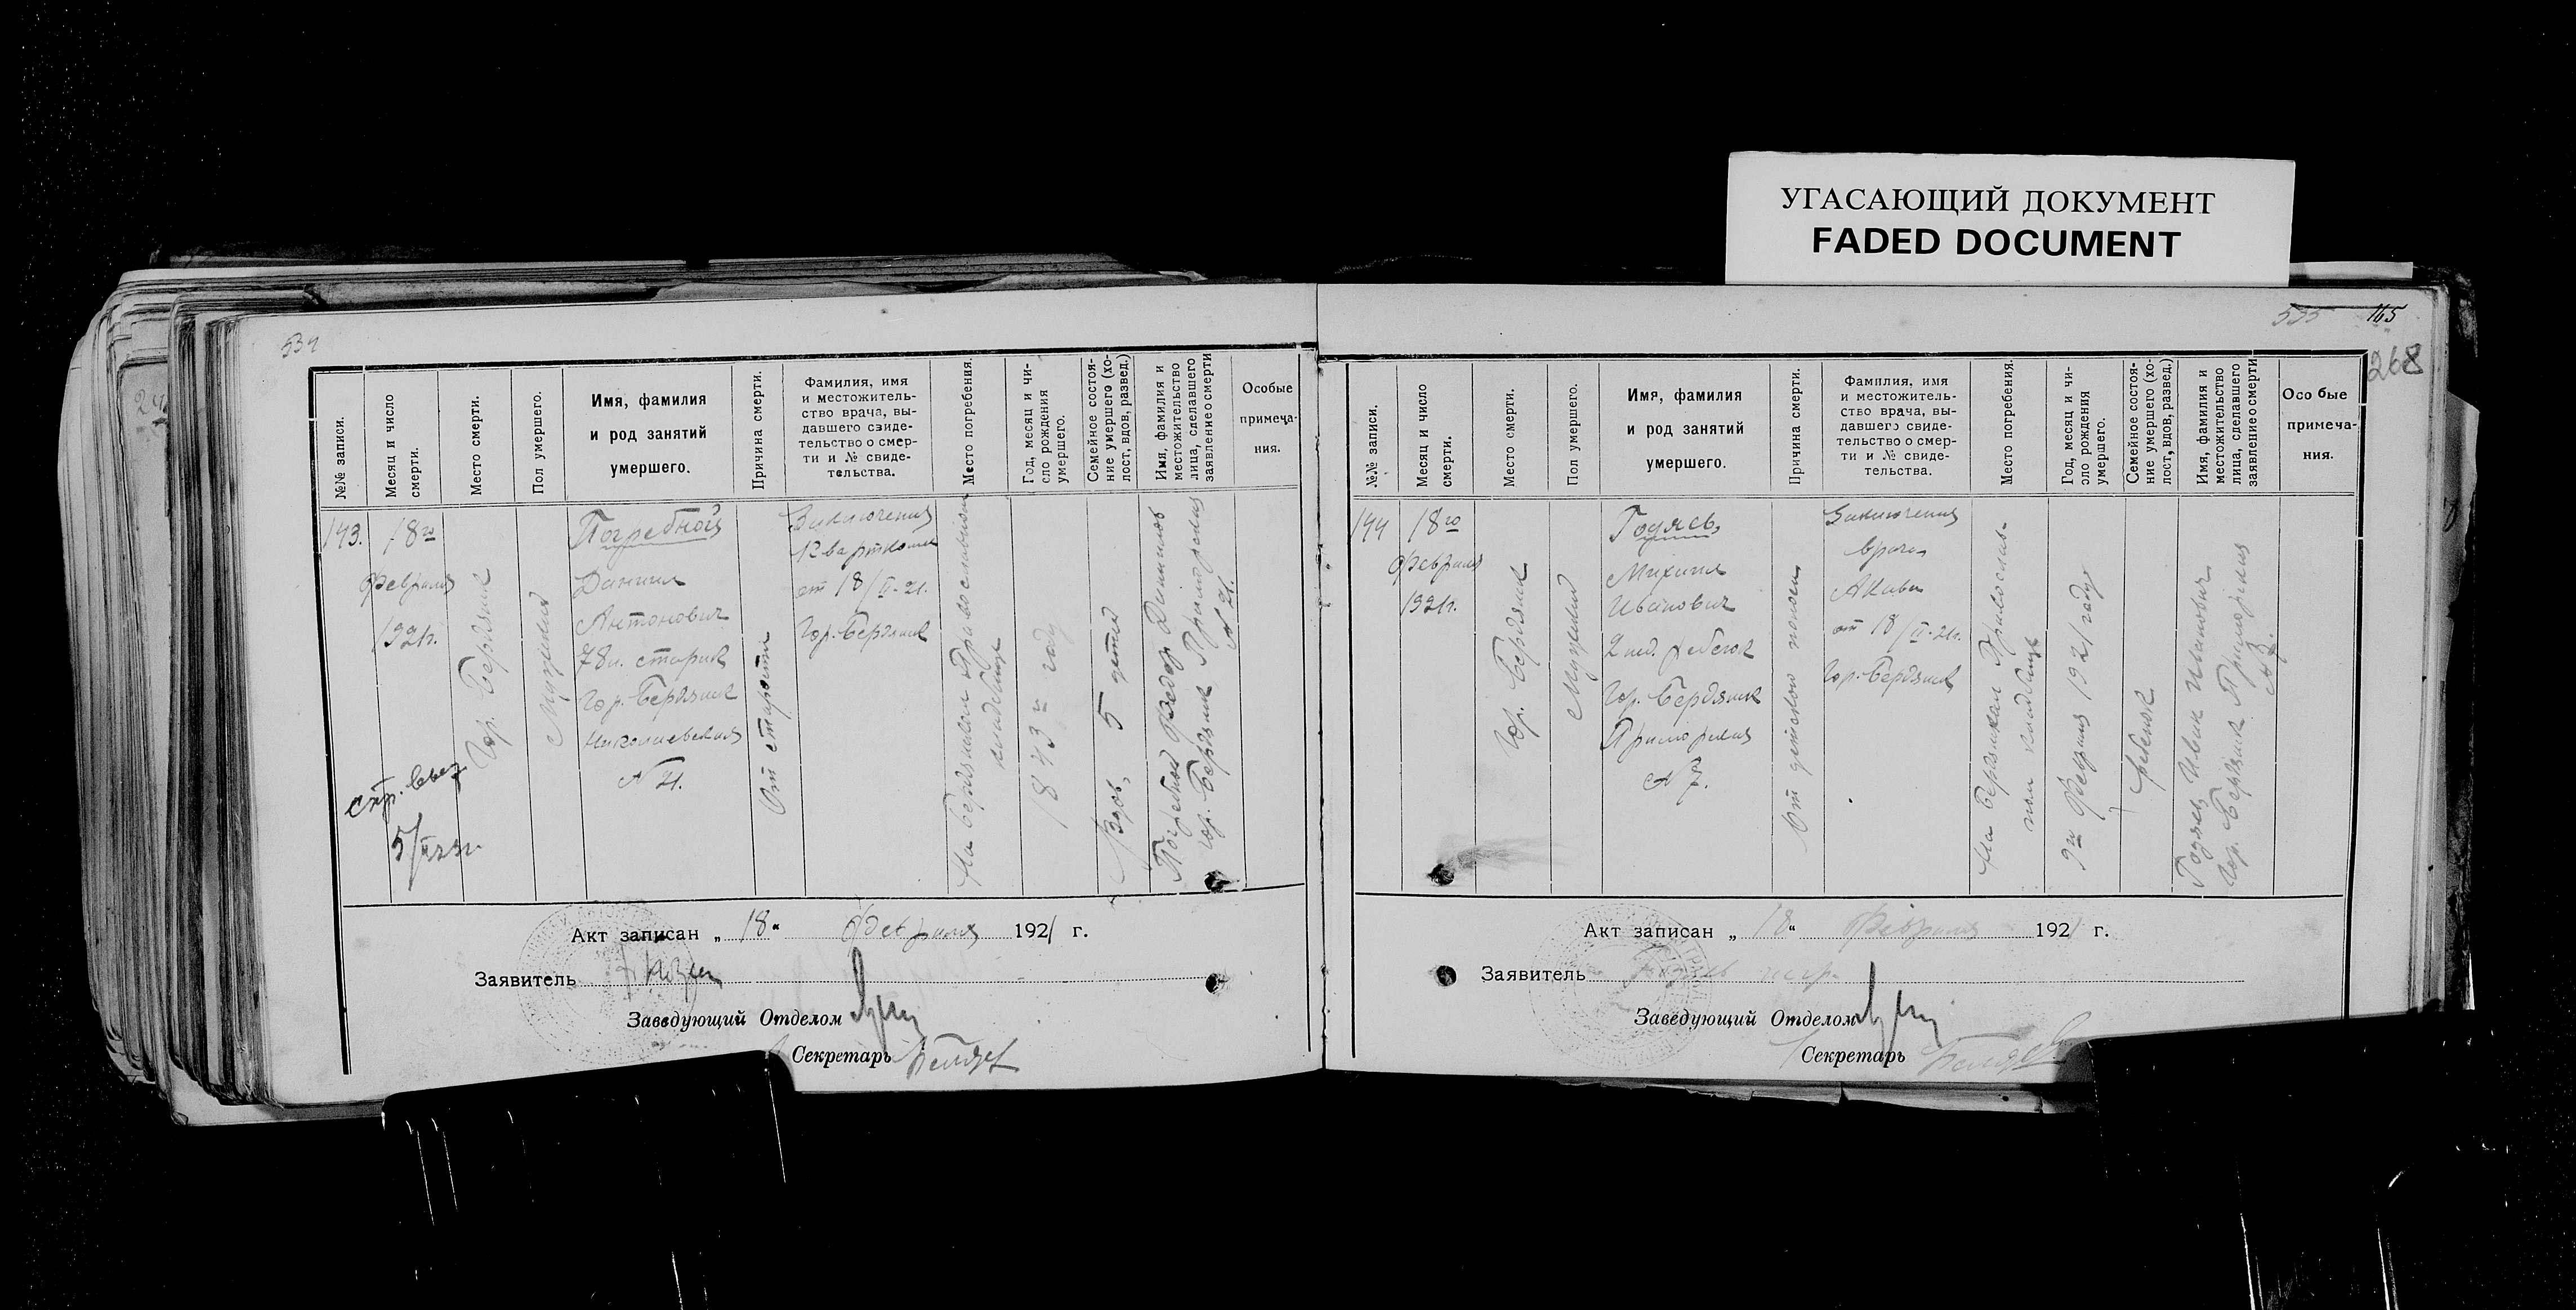 УГАСАЮЩИЙ ДОКУМЕНТ
FADED DOCUMENT
534
№№ записи.
Месяц и число
смерти.
Место смерти.
Пол умершего.
Имя, фамилия
и род занятий
умершего.
Причина смерти.
Фамилия, имя
и местожитель-
ство врача, вы-
давшего свиде-
тельство о смер-
ти и № свиде-
тельства.
Место погребения.
Год, месяц и чи-
сло рождения
умершего.
Семейное состоя-
ние умершего (хо-
лост, вдов, развед.)
Имя, фамилия и
местожительство
лица, сделавшего
заявление о смерти
Особые
примеча-
ния.
143.
18го
февраля
1921г.
Гор. Бердянск
Мужской
Погребной
Даниил
Антонович
78л. старик
Гор. Бердянск
Николаевская
N 21.
От старости
Заключения
Кварткома
от 18/II-21.
Гор. Бердянск
На бердянском Православном
кладбище
1843 г. году
Вдов, 5 детей
Погребной Федор Даниилов
гор. Бердянск Приморская
N 21.
Акт записан „ 18 “ Февраля 1921 г.
Заявитель
Заведующий Отделом
Секретарь
535 165
268
№№ записи.
Месяц и число
смерти.
Место смерти.
Пол умершего.
Имя, фамилия
и род занятий
умершего.
Причина смерти.
Фамилия, имя
и местожитель-
ство врача, вы-
давшего свиде-
тельство о смер-
ти и № свиде-
тельства.
Место погребения.
Год, месяц и чи-
сло рождения
умершего.
Семейное состоя-
ние умершего (хо-
лост, вдов, развед.)
Имя, фамилия и
местожительство
лица, сделавшего
заявление о смерти
Особые
примеча-
ния.
144
18го
Февраля
1921г.
Гор. Бердянск
Мужской
Михаил
Иванович
2 нед. ребенок
Гор. Бердянск
Приморская
N 7.
От детской
Заключения
врача
от 18/II-21г.
Гор. Бердянск
На бердянском Православ-
ном кладбище
9го Февраля 1921 году
ребенок
Иван Иванович
Гор. Бердянск Приморская
N 7.
Акт записан „ 18 “ Февраля 1921 г.
Заявитель
Заведующий Отделом
Секретарь